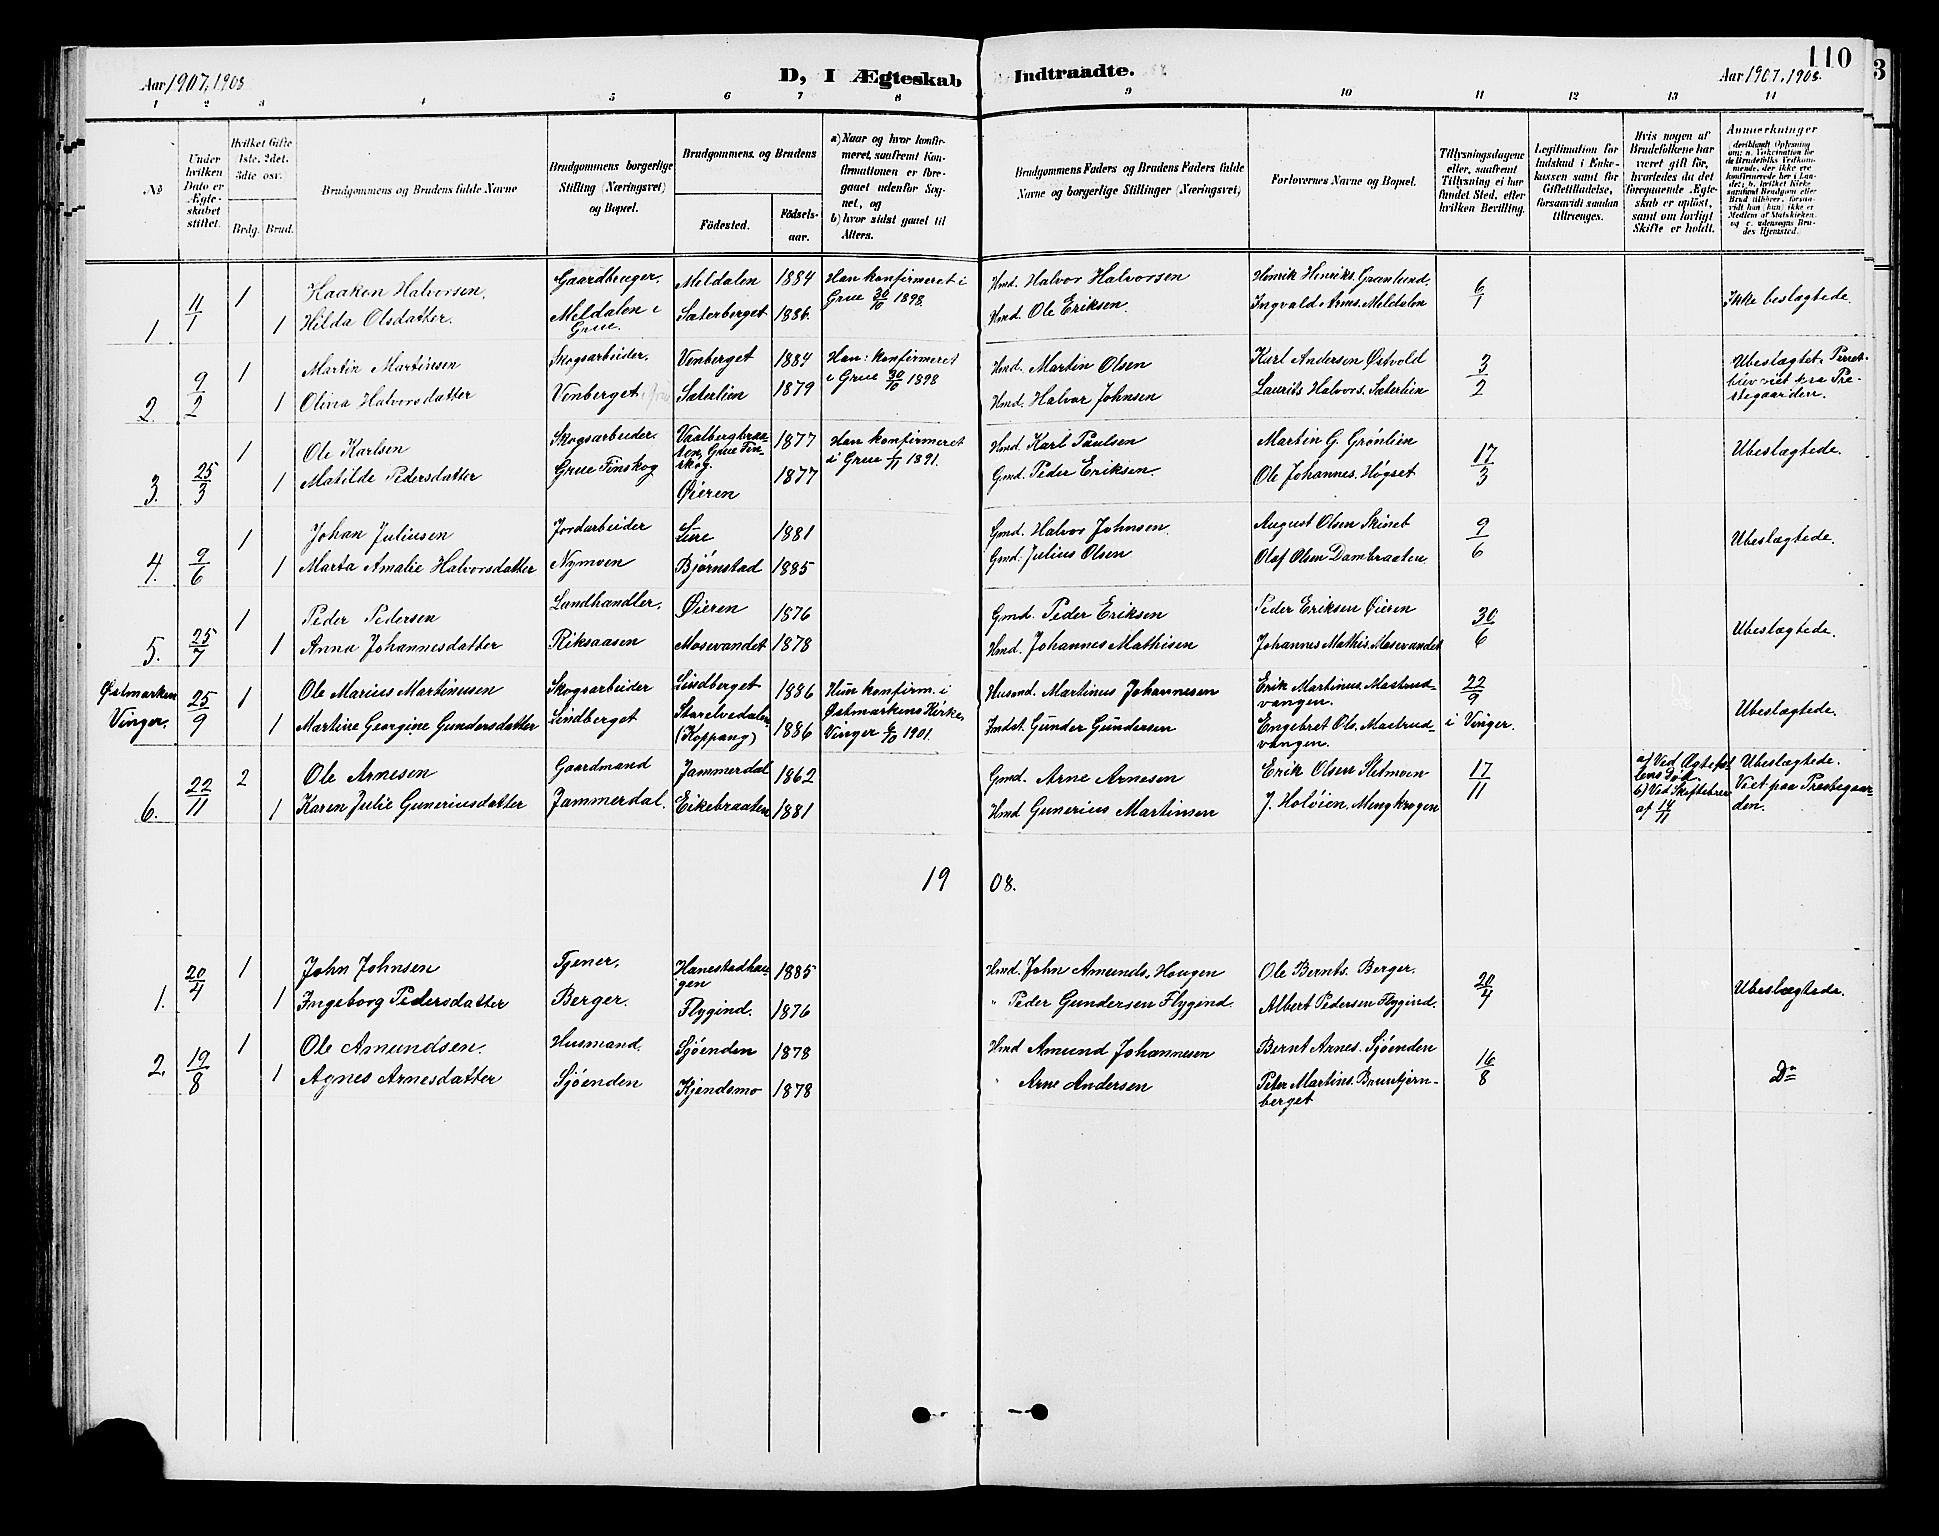 Aar 1907, 1908
D, I Ægteskab Indtraadte.
110
3
Aar 1907, 1908.
1 2 3 4 5 6 7 8 9 10 11 12 13 14
No
Under hvilken Dato er Ægteskabet stiftet.
Hvilket Gifte 1ste, 2det, 3die osv.
Brdg. Brud.
Brudgommens og Brudens fulde Navne
Brudgommens borgerlige Stilling (Næringsvei) og Bopæl.
Brudgommens og Brudens
Födested.
Födselsaar.
a) Naar og hvor konfirmeret, saafremt Konfirmationen er foregaaet udenfor Sognet, og
b) hvor sidst gaaet til Alters.
Brudgommens Faders og Brudens Faders fulde Navne og borgerlige Stillinger (Næringsvei)
Forlovernes Navne og Bopæl.
Tillysningsdagene eller, saafremt Tillysning ei har fundet Sted, efter hvilken Bevilling.
Legitimation for Indskud i Enkekassen samt for Giftetilladelse, forsaavidt saadan tiltrænges.
Hvis nogen af Brudefolkene har været gift før, hvorledes da det foregaaende Ægteskab er opløst, samt om lovligt Skifte er holdt.
Anmerkninger
1 4/1 1 Haaken Halvorsen. Gaardbruger. Meldalen 1884 Han konfirmeret i Grue 30/10 1898. Hmd. Halvor Halvorsen Henrik Henriks. Grønlund. 6/1 Ikke beslægtede.
1 Hilda Olsdatter. Meldalen i Grue. Sæterberget 1886. Hmd. Ole Eriksen. Ingvald Arns. Meldalen
2. 9/2 1 Martin Martinsen Skogsarbeider. Venberget 1884 Han: konfirmeret i Grue 30/10 1898 Hmd. Martin Olsen Karl Andersen Østvold 3/2 Ubeslægtet.
1 Olina Halvorsdatter Venberget Sæterlien 1879 Hmd. Halvor Johnsen Laurits Halvors. Sæterlien
3. 25/3 1 Ole Karlsen Skogsarbeider. Vaalbergbraaten, Grue Finskog. 1877 Han konfirmeret i Grue 1/11 1891. Hmd. Karl Paulsen Martin G. Grønlien 17/3 Ubeslægtede.
1 Matilde Pedersdatter Grue Finskog Øieren 1877 Gmd. Peder Eriksen. Ole Johannes. Høgset
4. 9/6 1 Johan Juliusen Jordarbeider Lure 1881 Gmd. Halvor Johnsen. August Olsen Skinet 9/6 Ubeslægtede.
1 Marta Amalie Halvorsdatter Nymoen Bjørnstad 1885 Gmd. Julius Olsen Olaf Olsen Dambraaten.
5. 25/7 1 Peder Pedersen Landhandler. Øieren 1876 Gmd. Peder Eriksen Peder Eriksen Øieren 30/6 Ubeslægtede.
1 Anna Johannesdatter Riksaasen Mosevandet 1878 Hmd. Johannes Mathisen Johannes Mathis. Mosevandet
Østmarken Vinger. 25/9 1 Ole Marius Martinusen Skogsarbeider Lindberget 1886 Hun konfirm. i Østmarkens Kirke, Vinger 6/10 1901. Husmd. Martinus Johannesen Erik Martinus. Mastrudvangen. 22/9 i Vinger. Ubeslægtede.
1 Martine Georgine Gundersdatter Lindberget Storelvedalen (Koppang) 1886 Indst. Gunder Gundersen Engebret Ols. Mastrudvangen.
6. 22/11 2 Ole Arnesen Gaardmand Jammerdal 1862 Gmd. Arne Arnesen Erik Olsen Sletmoen 17/11 a) Ved Ægtefællens Død. b) Ved Skiftebrev af 14/11 Ubeslægtede. Viet paa Præstegaarden.
1 Karen Julie Guneriusdatter Jammerdal. Eikebraaten 1881 Hmd Gunerius Martinsen J. Holøien, Mengkrogen
1908.
1. 20/4 1 John Johnsen Tjener. Hanestadhaugen 1885 Hmd. John Amunds. Haugen Ole Bernts. Berger. 20/4 Ubeslægtede.
1 Ingeborg Pedersdatter Berger. Flygind. 1876 " Peder Gundersen Flygind. Albert Pedersen Flygind.
2. 19/8 1 Ole Amundsen. Husmand. Sjøenden 1878 Hmd Amund Johannesen Bernt Arnes. Sjøenden 16/8 Do
1 Agnes Arnesdatter Sjøenden Kjendsmo 1878 " Arne Andersen Peter Martins. Bruntjernberget